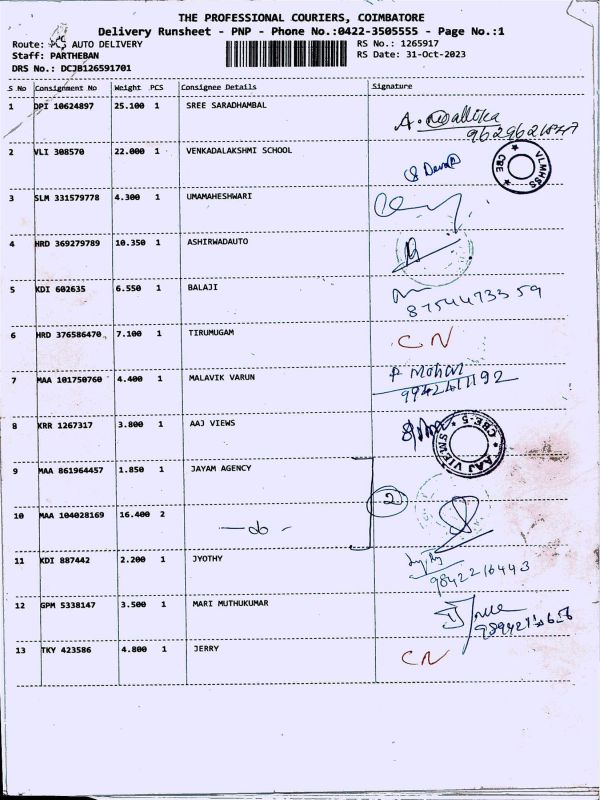 THE PROFESSIONAL COURIERS, COIMBATORE
Delivery Runsheet - PNP - Phone No.:0422-3505555 - Page No.:1
Route: PCS AUTO DELIVERY RS No.: 1265917
Staff: PARTHEBAN RS Date: 31-Oct-2023
DRS No.: DCJB126591701
S No Consignment No Weight PCS Consignee Details Signature
1 DPI 10624897 25.100 1 SREE SARADHAMBAL
A.
2 VLI 308570 22.000 1 VENKADALAKSHMI SCHOOL
VLMHSS CBE
3 SLM 331579778 4.300 1 UMAMAHESHWARI
4 HRD 369279789 10.350 1 ASHIRWADAUTO
5 KDI 602635 6.550 1 BALAJI
8754473359
6 HRD 376586470 7.100 1 TIRUMUGAM CN
7 MAA 101750760 4.400 1 MALAVIK VARUN P Mohan
8 KRR 1267317 3.800 1 AAJ VIEWS
AAJ VIEW SM CBE-5
9 MAA 861964457 1.850 1 JAYAM AGENCY
2
10 MAA 104028169 16.400 2
- do -
11 KDI 887442 2.200 1 JYOTHY
9842216443
12 GPM 5338147 3.500 1 MARI MUTHUKUMAR
13 TKY 423586 4.800 1 JERRY CN